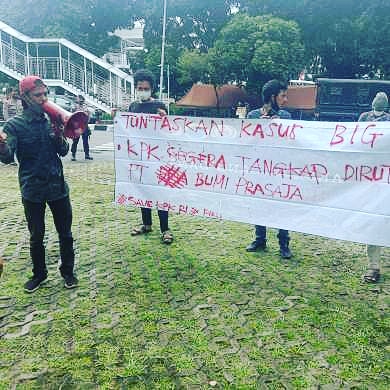 TUNTASKAN KASUS BIG
• KPK SEGERA TANGKAP DIRUT
PT BUMI PRASAJA
#SAVE KPK RI